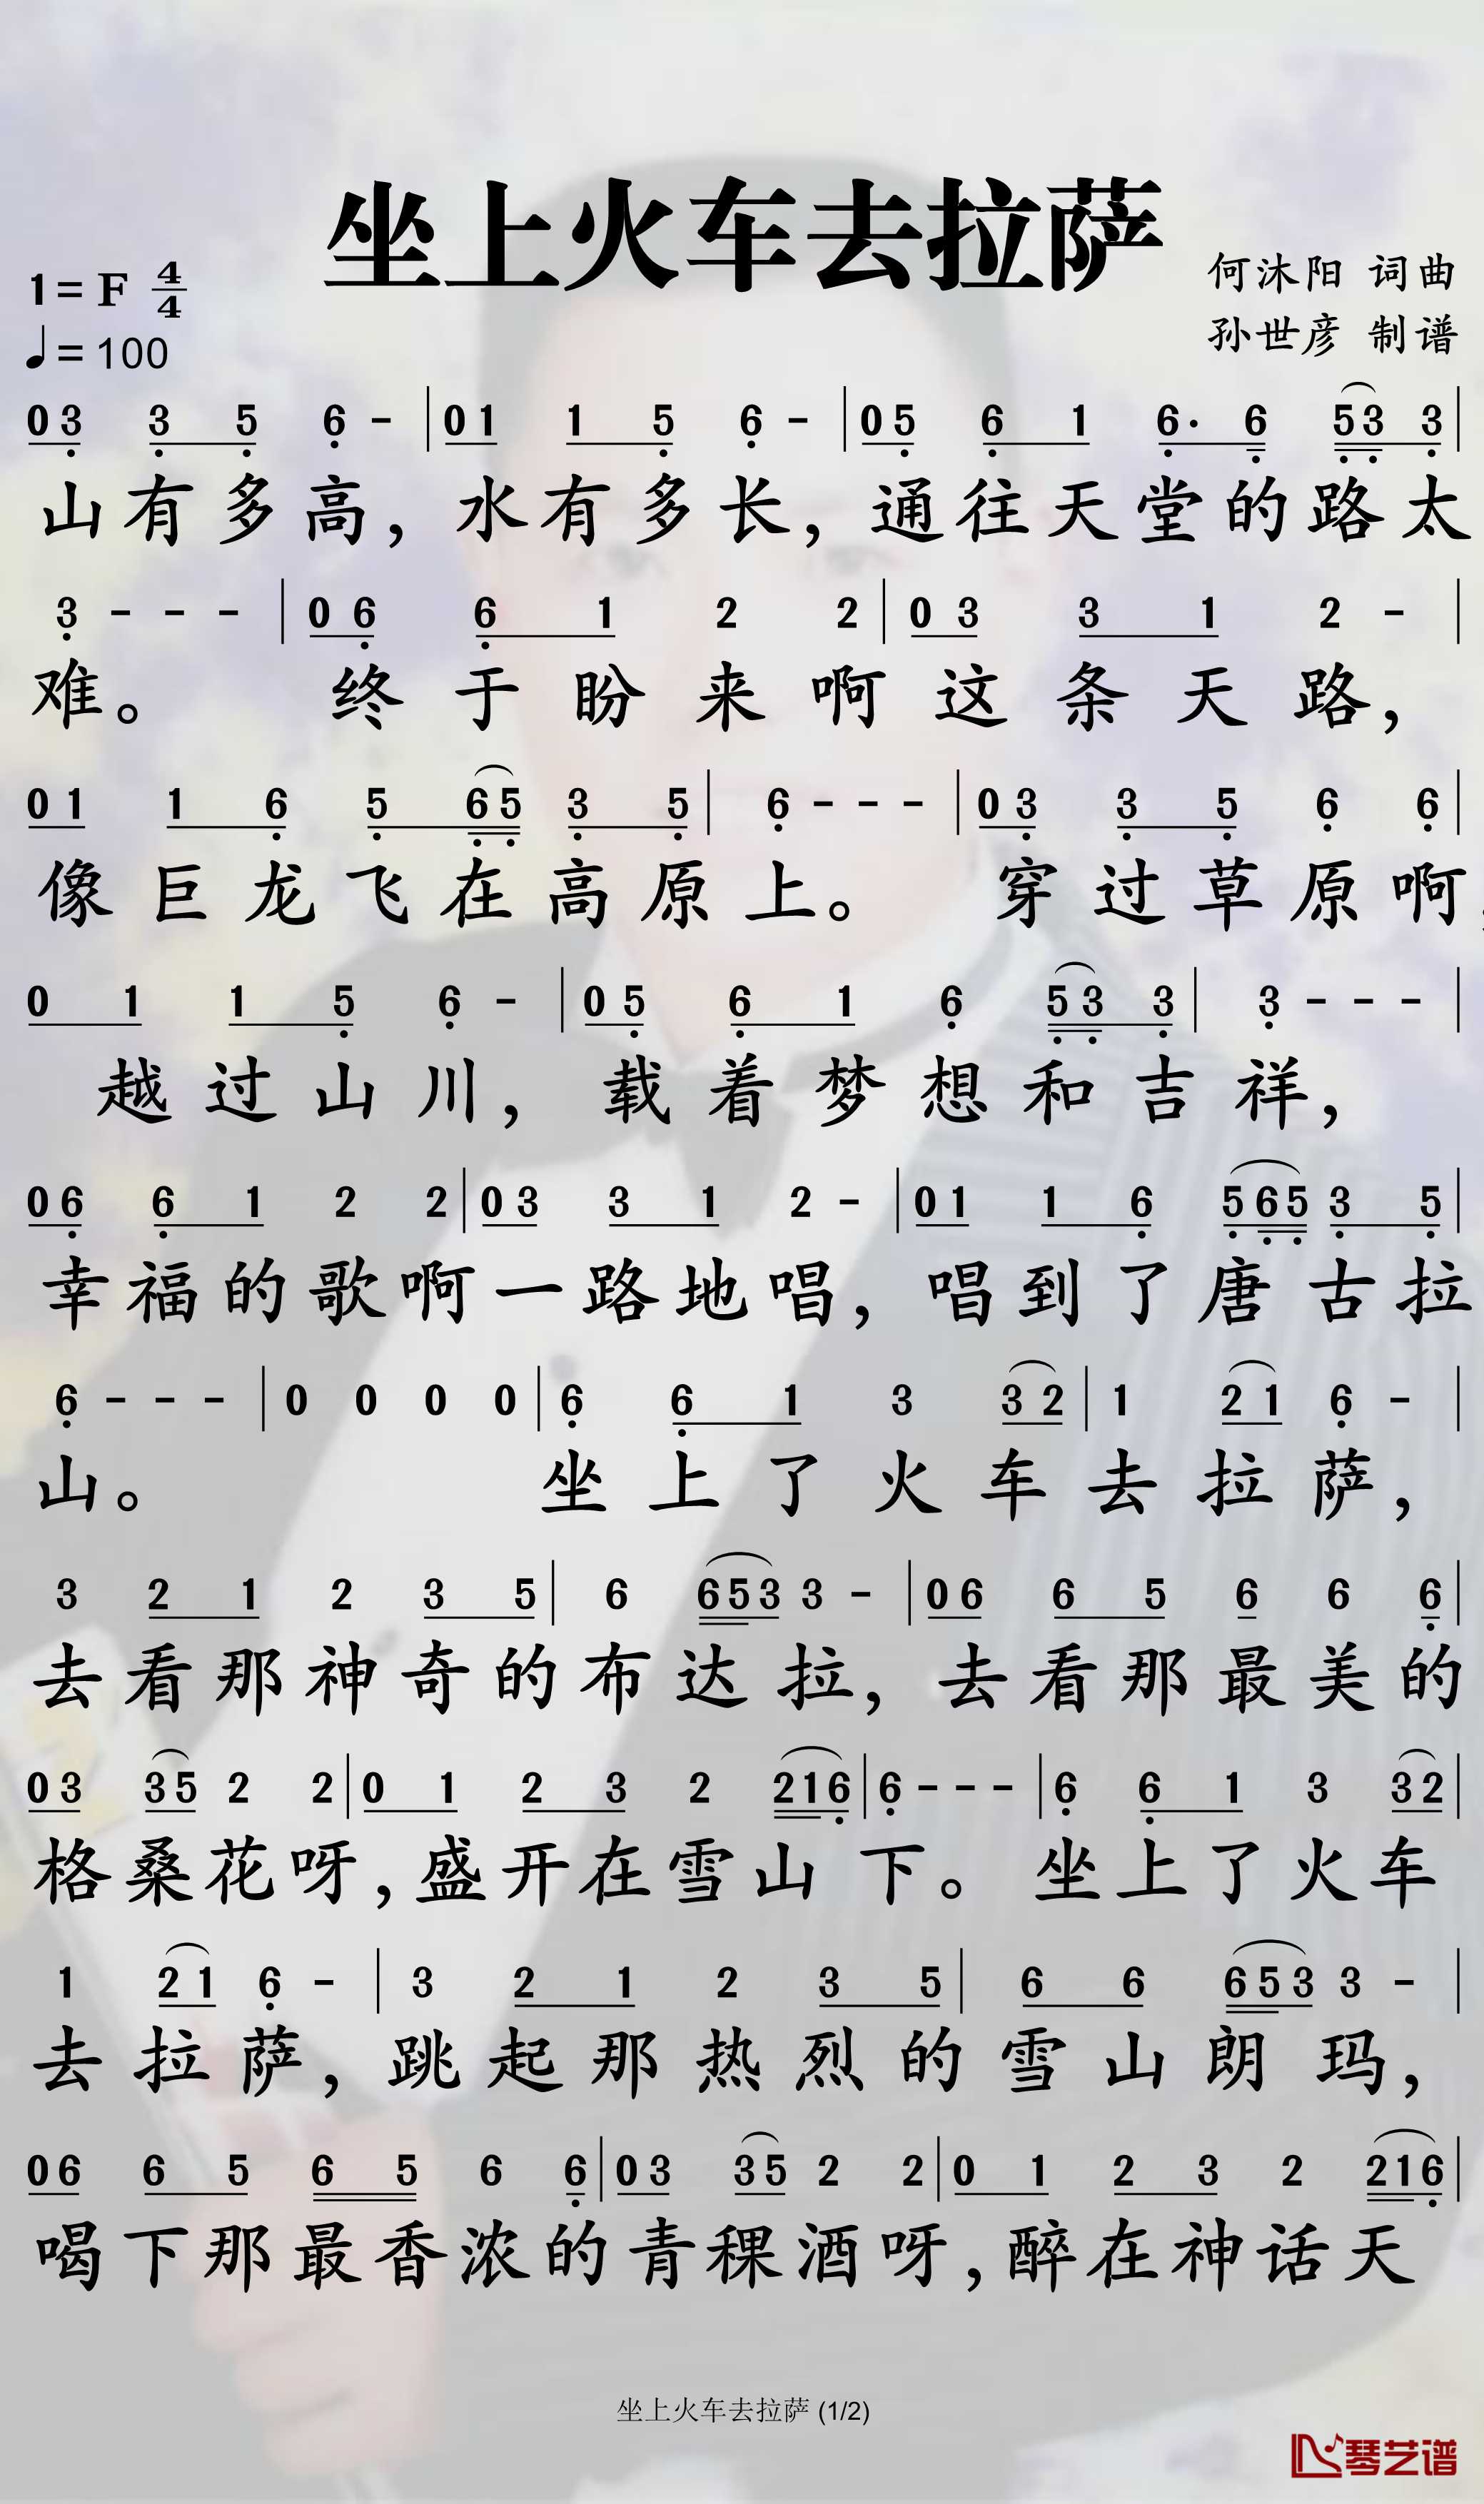 坐上火车去拉萨
1=F 4/4
何沐阳 词曲
♩=100
孙世彦 制谱
0 3 3 5 6 - | 0 1 1 5 6 - | 0 5 6 1 6· 6 5 3 3 |
山有多高，水有多长，通往天堂的路太
3 - - - | 0 6 6 1 2 2 | 0 3 3 1 2 - |
难。 终于盼来啊这条天路，
0 1 1 6 5 6 5 3 5 | 6 - - - | 0 3 3 5 6 6 |
像巨龙飞在高原上。 穿过草原啊，
0 1 1 5 6 - | 0 5 6 1 6 5 3 3 | 3 - - - |
越过山川，载着梦想和吉祥，
0 6 6 1 2 2 | 0 3 3 1 2 - | 0 1 1 6 5 6 5 3 5 |
幸福的歌啊一路地唱，唱到了唐古拉
6 - - - | 0 0 0 0 | 6 6 1 3 3 2 | 1 2 1 6 - |
山。 坐上了火车去拉萨，
3 2 1 2 3 5 | 6 6 5 3 3 - | 0 6 6 5 6 6 6 |
去看那神奇的布达拉，去看那最美的
0 3 3 5 2 2 | 0 1 2 3 2 2 1 6 | 6 - - - | 6 6 1 3 3 2 |
格桑花呀，盛开在雪山下。坐上了火车
1 2 1 6 - | 3 2 1 2 3 5 | 6 6 6 5 3 3 - |
去拉萨，跳起那热烈的雪山朗玛，
0 6 6 5 6 5 6 6 | 0 3 3 5 2 2 | 0 1 2 3 2 2 1 6 |
喝下那最香浓的青稞酒呀，醉在神话天
坐上火车去拉萨 (1/2)
琴艺谱